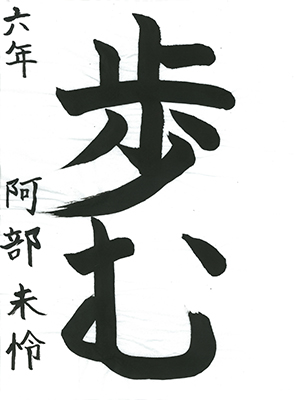 歩む
六年 阿部未怜